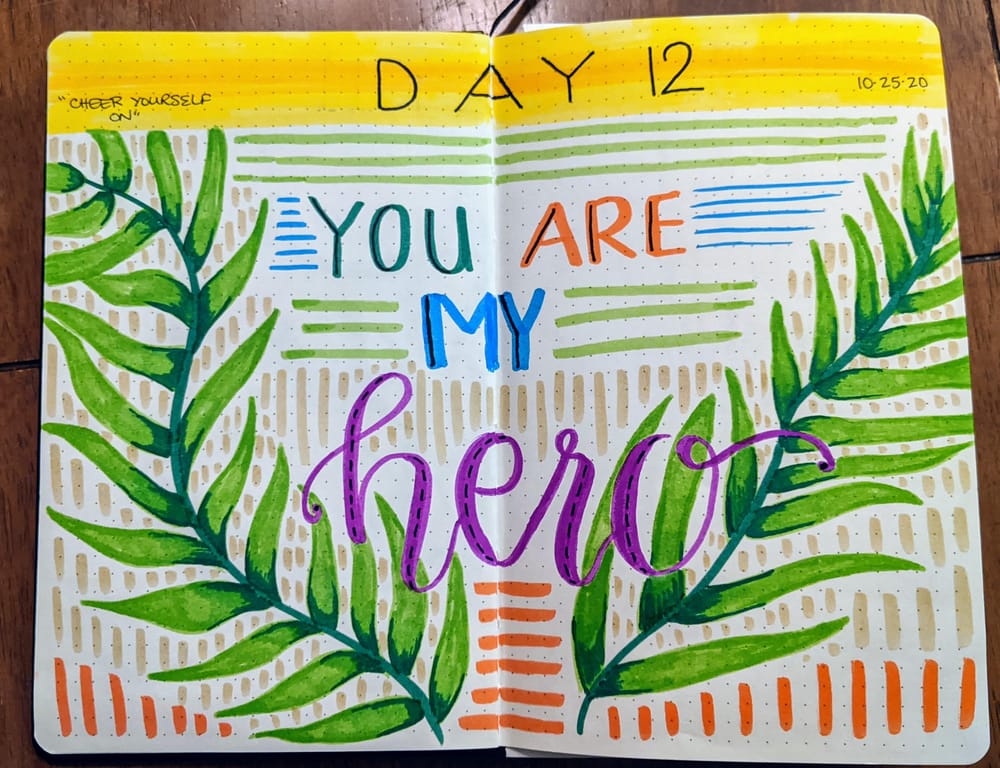 DAY 12
"CHEER YOURSELF
ON"
10-25-20
YOU ARE
MY
hero